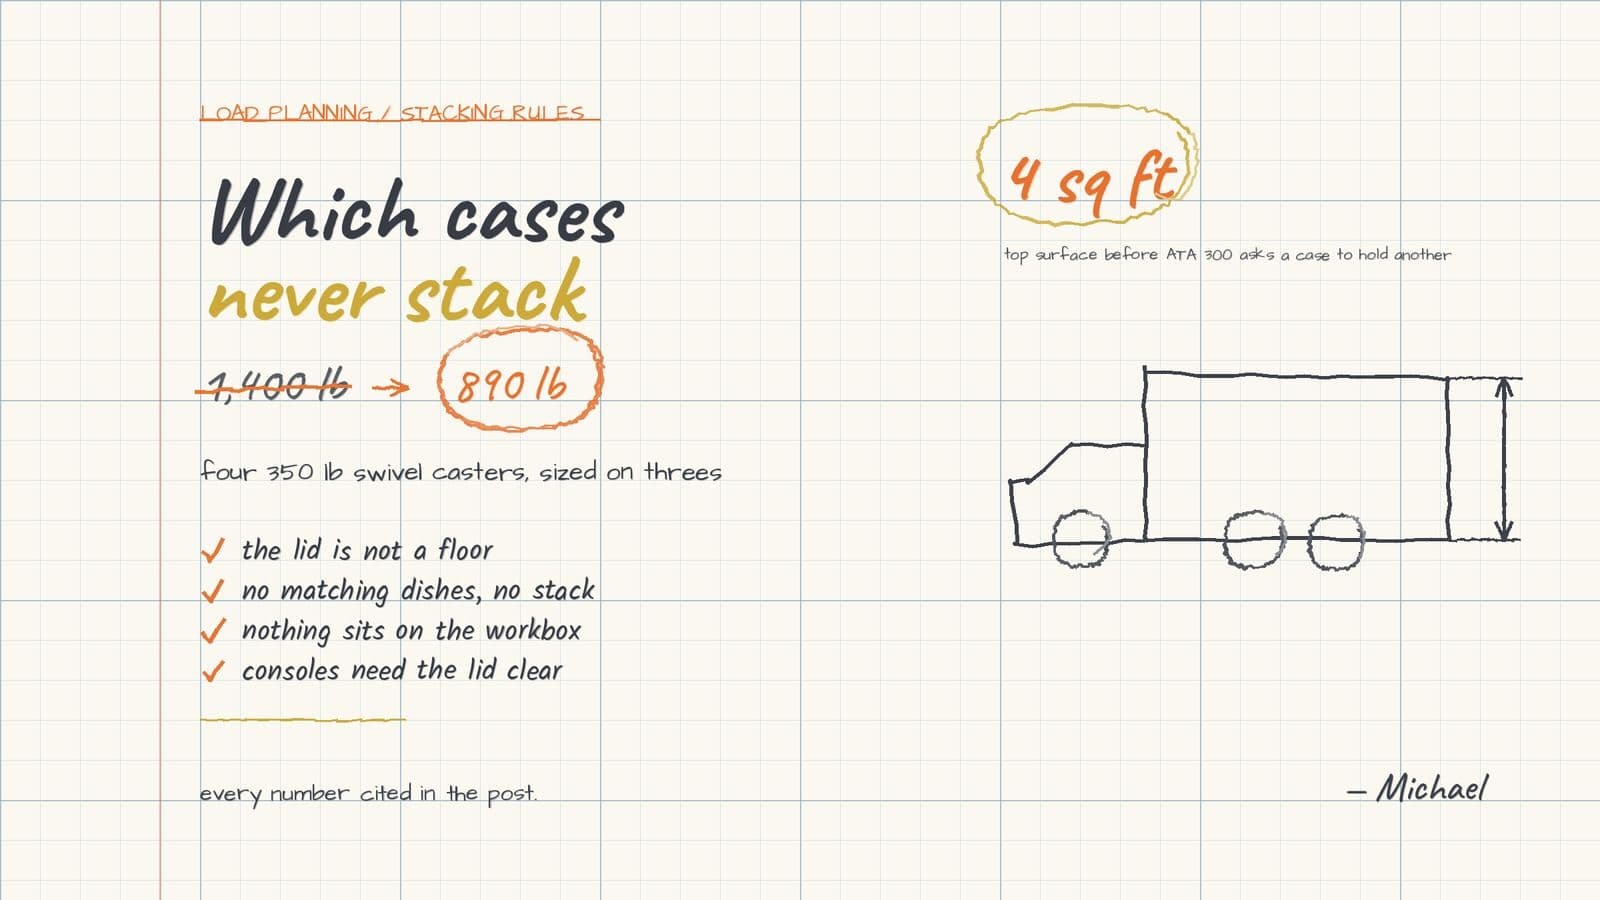 LOAD PLANNING / STACKING RULES
Which cases
never stack
1,400 lb → 890 lb
four 350 lb swivel casters, sized on threes
✓ the lid is not a floor
✓ no matching dishes, no stack
✓ nothing sits on the workbox
✓ consoles need the lid clear
every number cited in the post.
4 sq ft
top surface before ATA 300 asks a case to hold another
– Michael